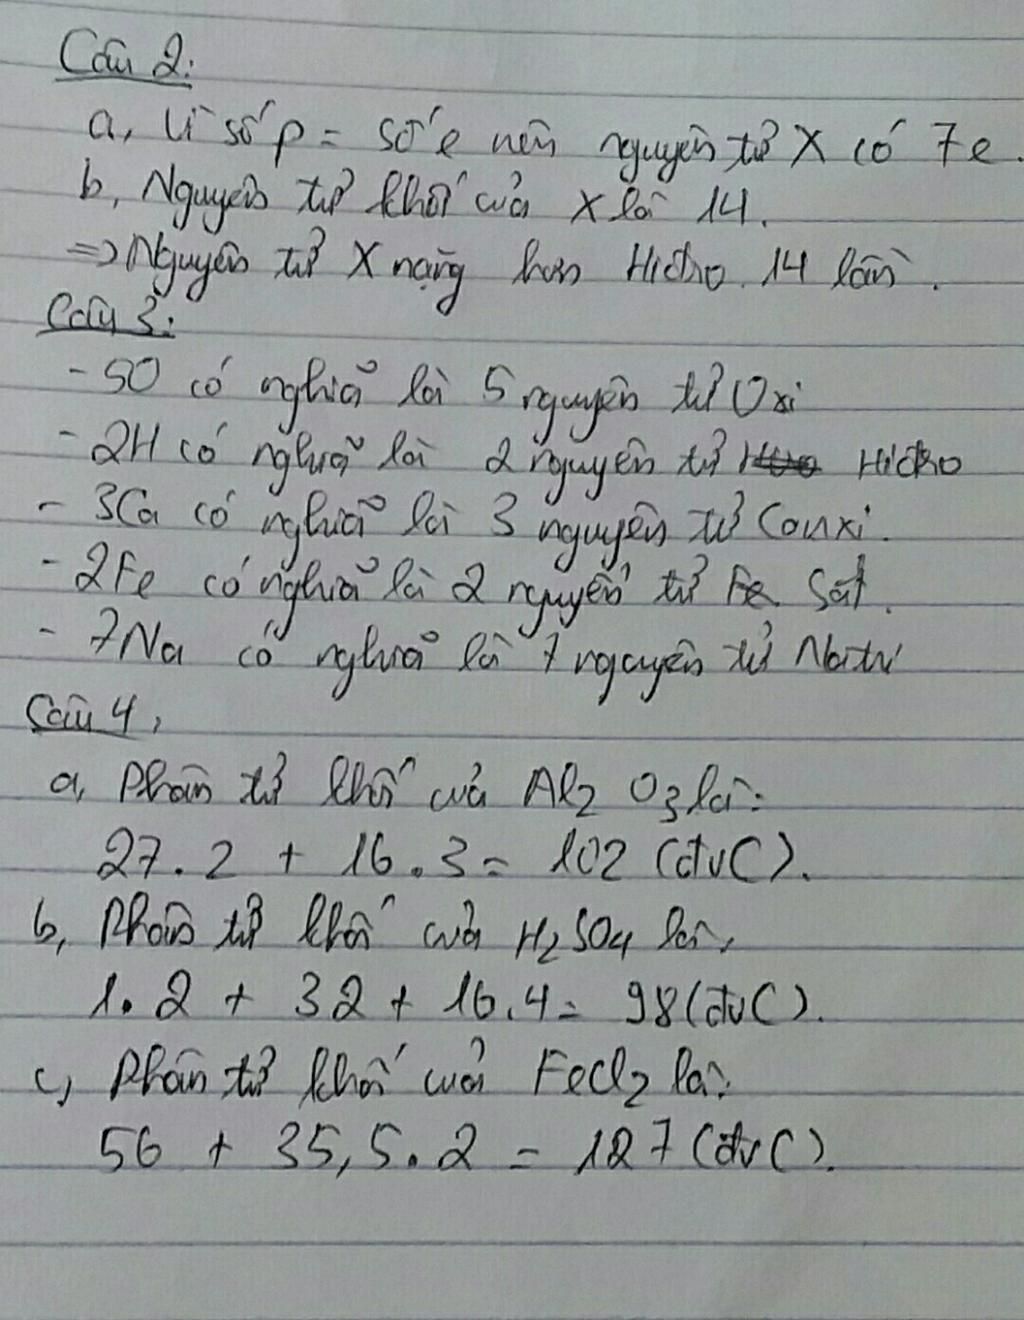 Câu 2:
a, Vì số p = số e nên nguyên tử X có 7e.
b, Nguyên tử khối của X là 14.
=> Nguyên tử X nặng hơn Hiđro 14 lần.
Câu 3:
- 5O có nghĩa là 5 nguyên tử Oxi
- 2H có nghĩa là 2 nguyên tử Hiđro
- 3Ca có nghĩa là 3 nguyên tử Canxi.
- 2Fe có nghĩa là 2 nguyên tử Sắt.
- 7Na có nghĩa là 7 nguyên tử Natri
Câu 4,
a, Phân tử khối của Al₂ O₃ là:
27.2 + 16.3 = 102 (đvC).
b, Phân tử khối của H₂SO₄ là,
1.2 + 32 + 16.4 = 98 (đvC).
c, Phân tử khối của FeCl₂ là:
56 + 35,5.2 = 127 (đvC).